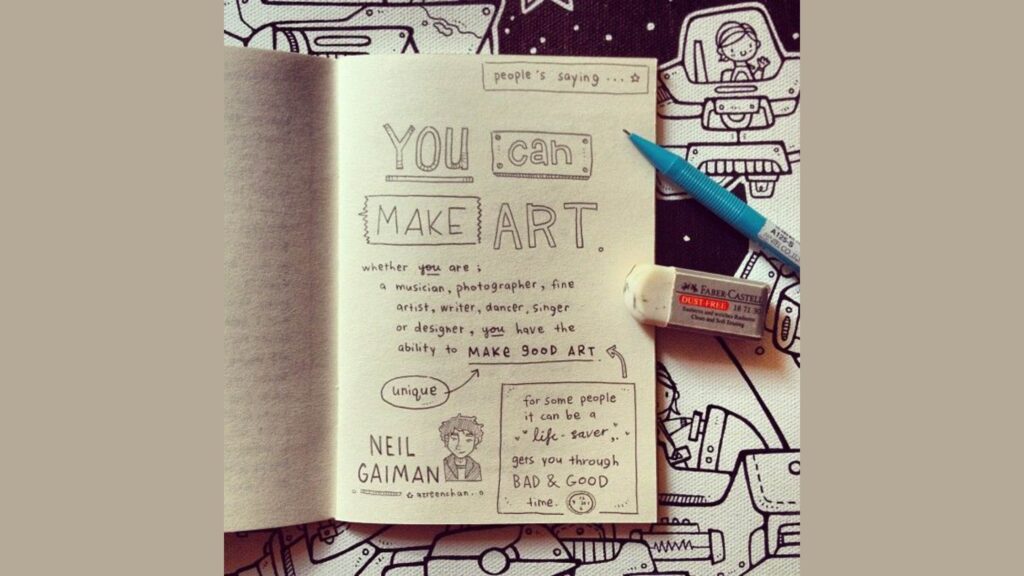 people's saying ... ☆
YOU can
MAKE ART.
whether you are ;
a musician, photographer, fine
artist, writer, dancer, singer
or designer, you have the
ability to MAKE gOOD ART.
unique
NEIL
GAIMAN
azreenchan.
for some people
it can be a
life-saver,
gets you through
BAD & GOOD
time.
A125-S
FABER-CASTELL
DUST-FREE 18 71 30
Clean and Soft Erasing